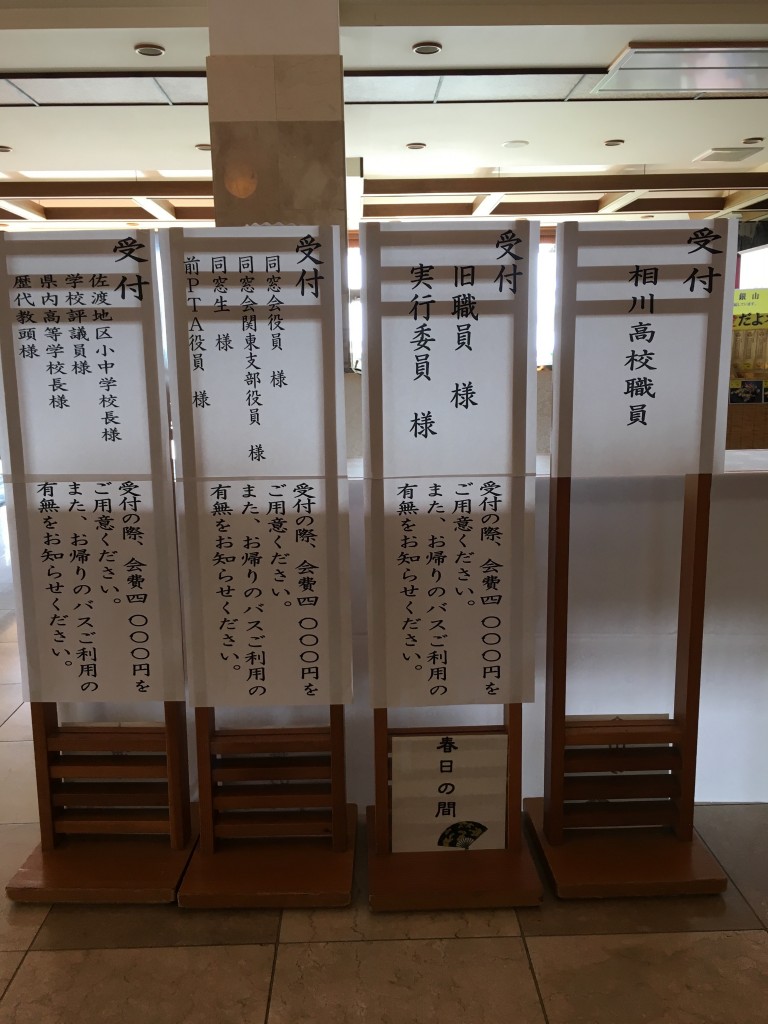 受付
相川高校職員
受付
旧職員　様
実行委員　様
受付の際、会費四〇〇〇円を
ご用意ください。
また、お帰りのバスご利用の
有無をお知らせください。
春日の間
受付
同窓会役員　様
同窓会関東支部役員　様
同窓生　様
前ＰＴＡ役員　様
受付の際、会費四〇〇〇円を
ご用意ください。
また、お帰りのバスご利用の
有無をお知らせください。
受付
佐渡地区小中学校長様
学校評議員様
県内高等学校長様
歴代教頭様
受付の際、会費四〇〇〇円を
ご用意ください。
また、お帰りのバスご利用の
有無をお知らせください。